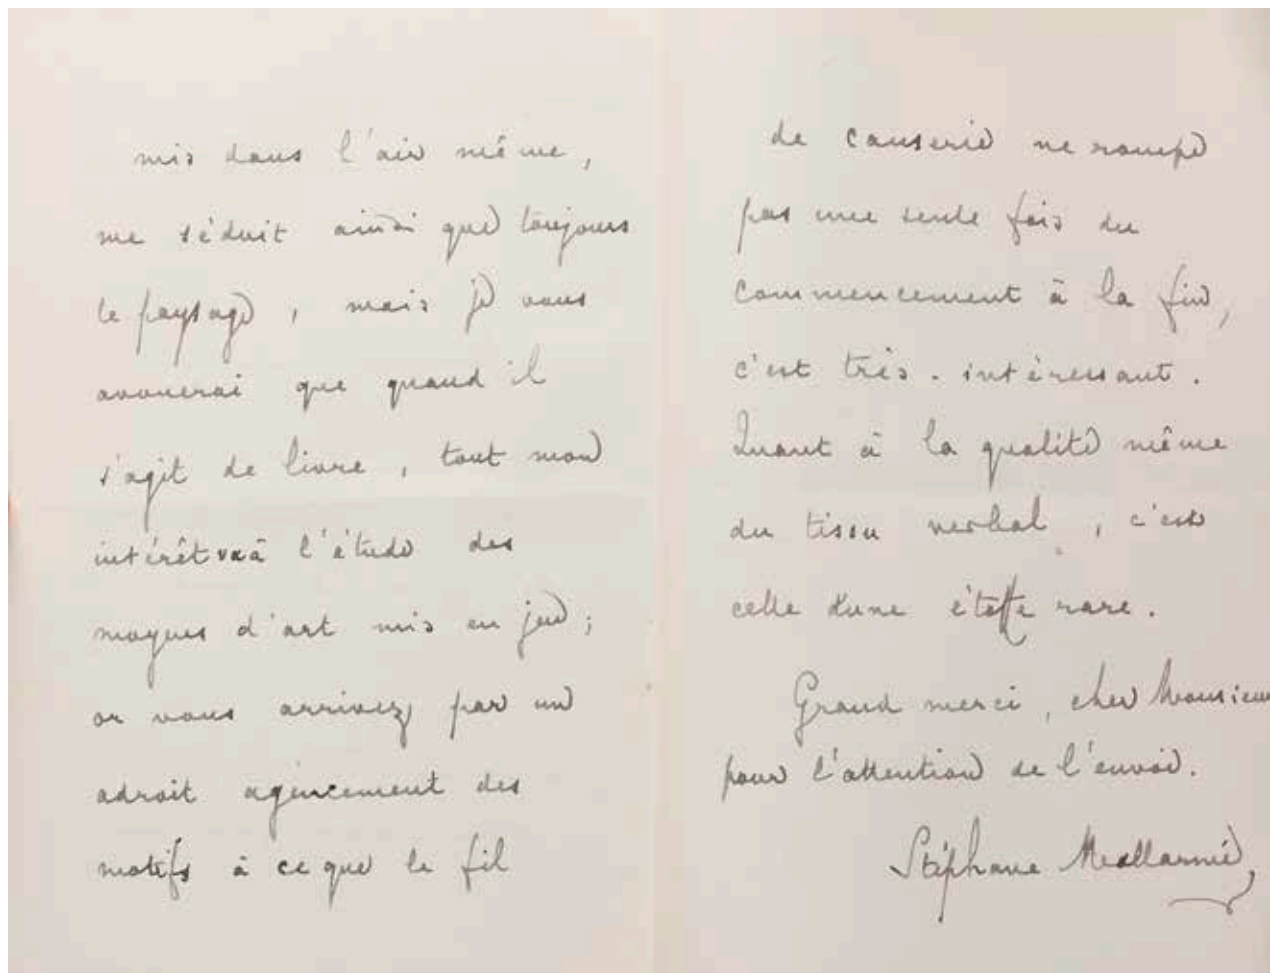 mis dans l'air même,
me séduit ainsi que toujours
le paysage, mais je vous
avouerai que quand il
s'agit de livre, tout mon
intérêt va à l'étude des
moyens d'art mis en jeu;
or vous arrivez par un
adroit agencement des
motifs à ce que le fil
de causerie ne rompe
pas une seule fois du
commencement à la fin,
c'est très-intéressant.
Quant à la qualité même
du tissu verbal, c'est
celle d'une étoffe rare.
Grand merci, cher Monsieur
pour l'attention de l'envoi.
Stéphane Mallarmé